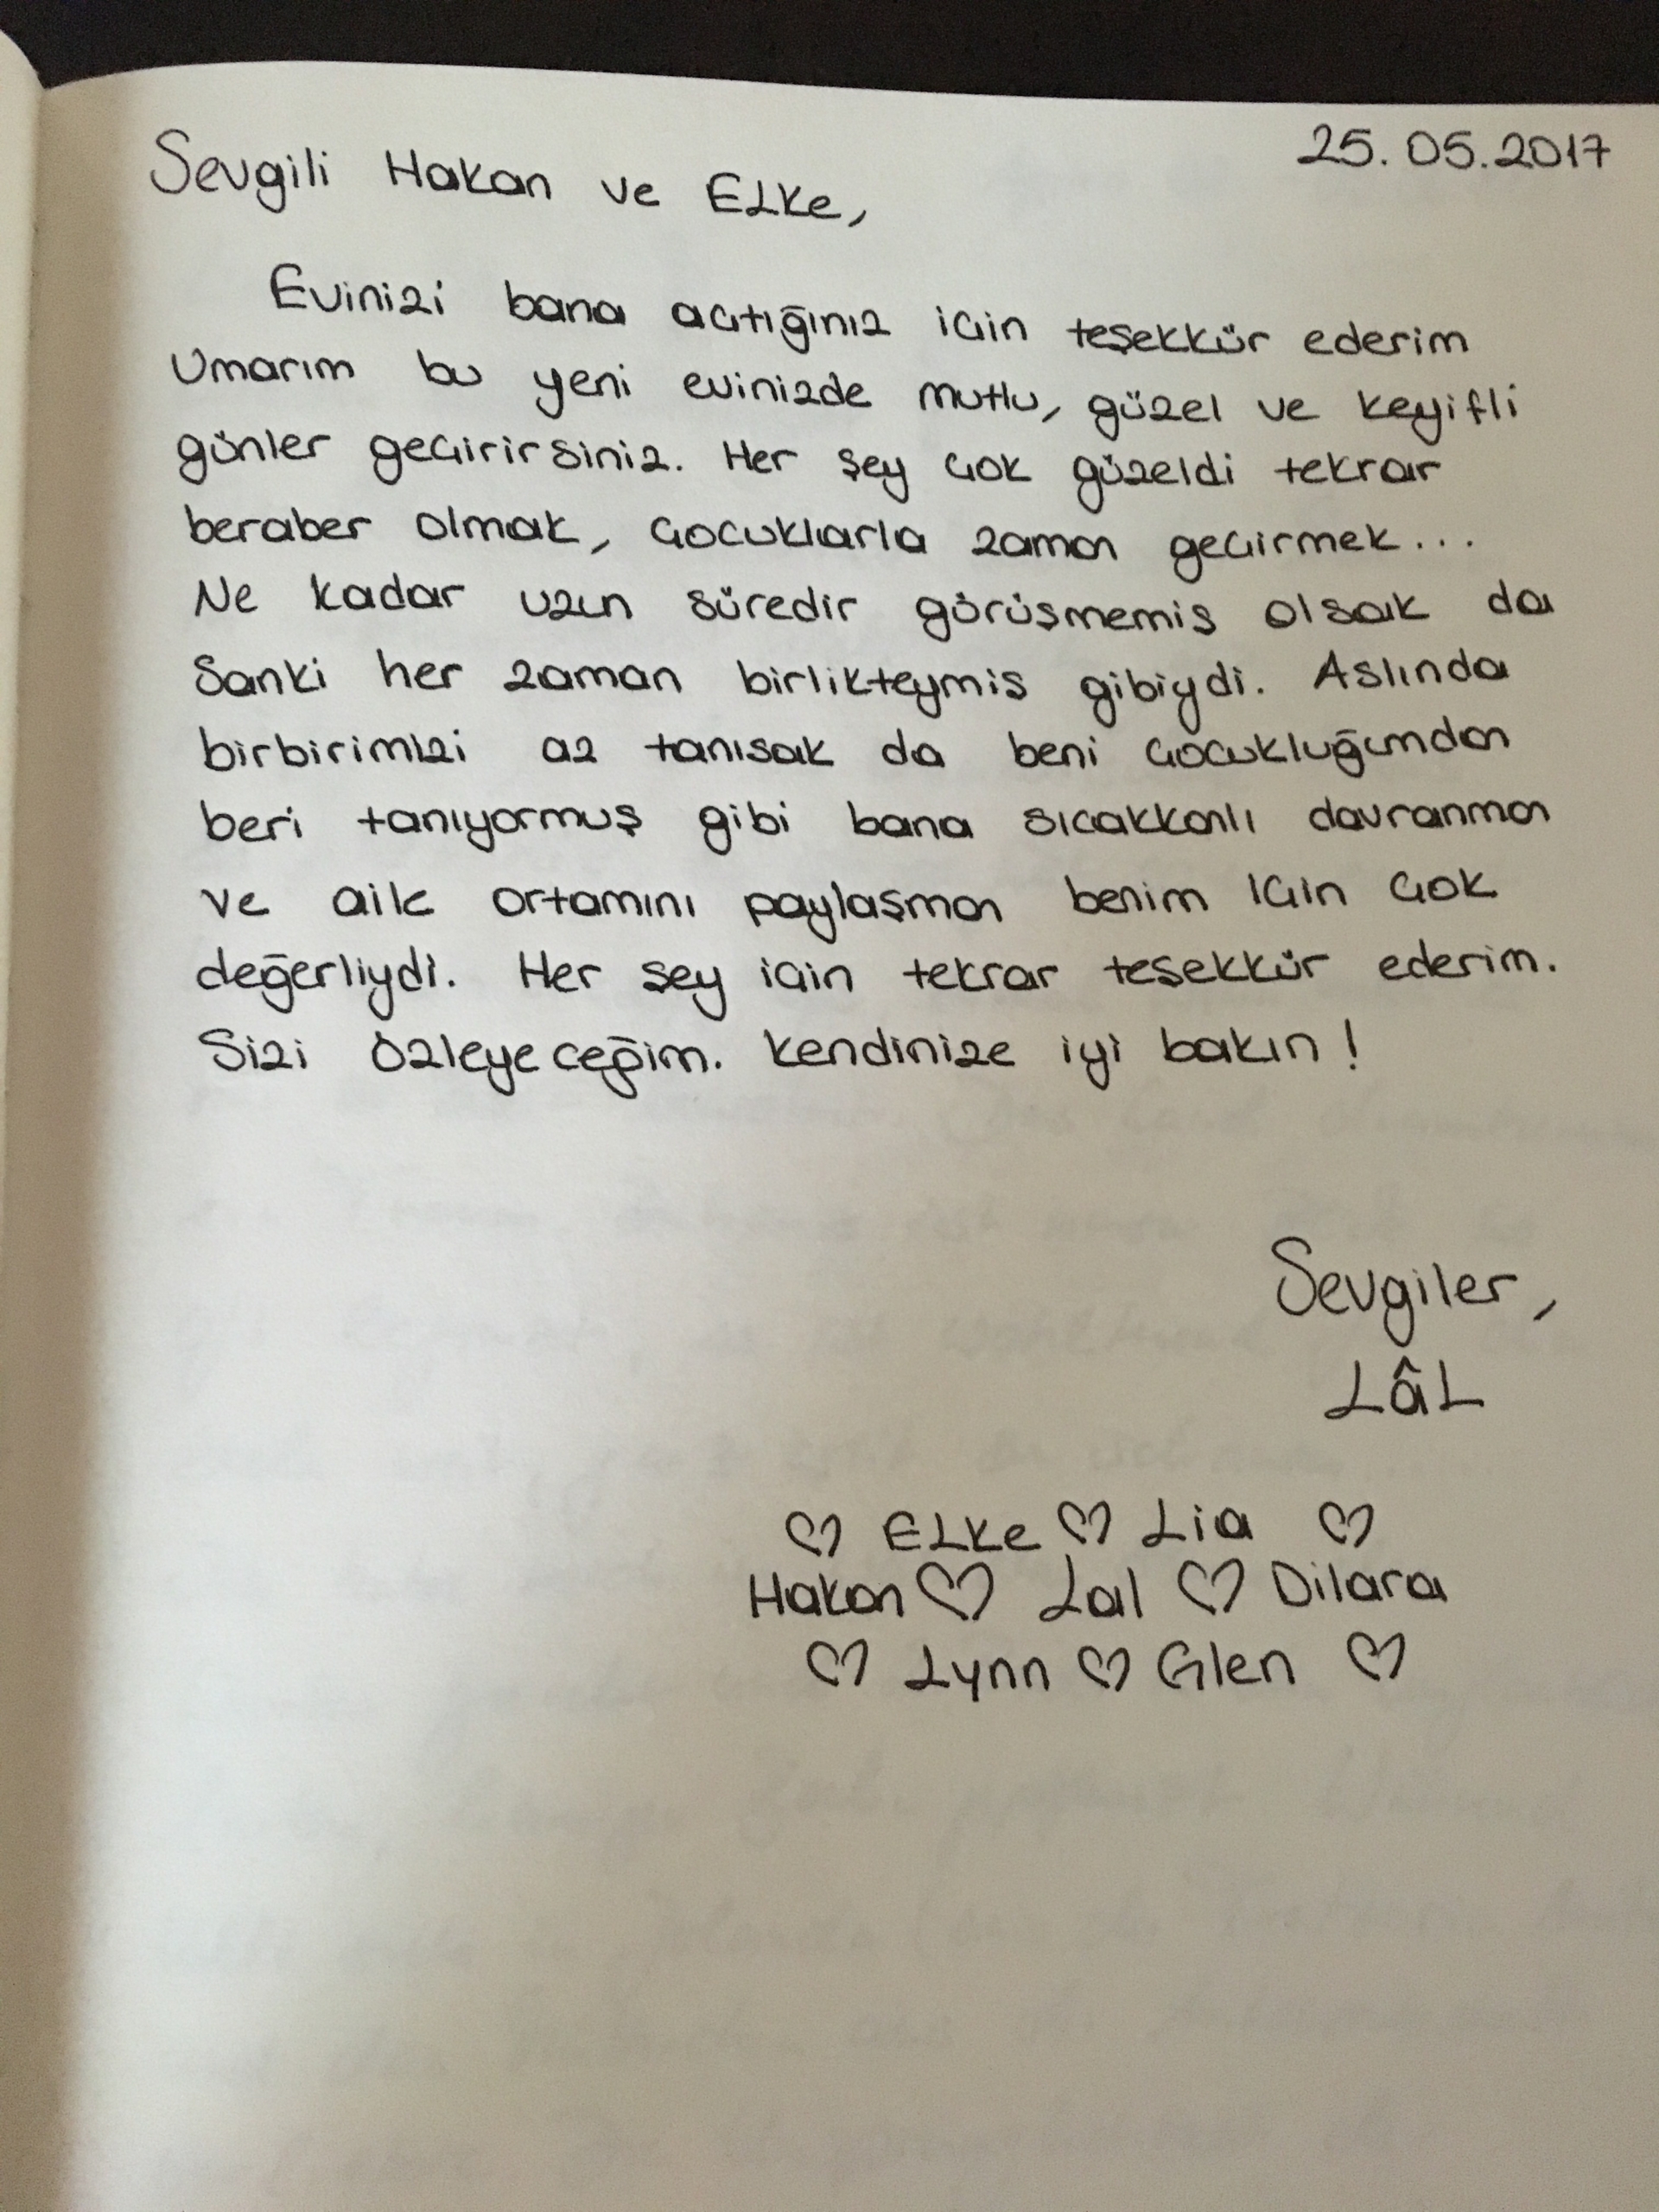 25.05.2017
Sevgili Hakan ve Elke,
Evinizi bana açtığınız için teşekkür ederim
Umarım bu yeni evinizde mutlu, güzel ve keyifli
günler geçirirsiniz. Her şey çok güzeldi tekrar
beraber olmak, çocuklarla zaman geçirmek...
Ne kadar uzun süredir görüşmemiş olsak da
sanki her zaman birlikteymiş gibiydi. Aslında
birbirimizi az tanısak da beni çocukluğumdan
beri tanıyormuş gibi bana sıcakkanlı davranman
ve aile ortamını paylaşman benim için çok
değerliydi. Her şey için tekrar teşekkür ederim.
Sizi özleyeceğim. Kendinize iyi bakın!
Sevgiler,
Lâl
♡ Elke ♡ Lia ♡
Hakan ♡ Lal ♡ Dilara
♡ Lynn ♡ Glen ♡